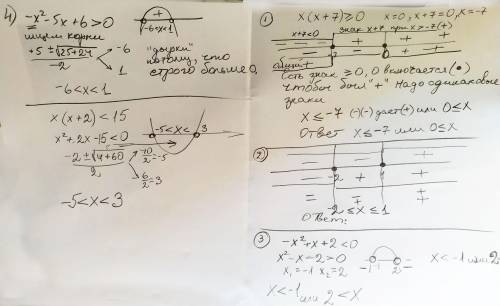 4) -x²-5x+6>0
ищем корни
+5 ± √25+24
-2
-6
1
+
-6<x<1
"дырки"
потому, что
строго больше 0
-6<x<1
x(x+2)<15
x²+2x-15<0
-2±√4+60
2
-10/2=-5
6/2=3
-5<x<
3
-5<x<3
1) x(x+7)≥0 x=0, x+7=0, x=-7
x+7<0 знак x+7 при x>-7(+)
Есть знак ≥0, 0 включается (•)
чтобы был "+" надо одинаковые
знаки
x≤-7 (-)(-) дает (+) или 0≤x
Ответ x≤-7 или 0≤x
2)
-2 1
Ответ: -2≤x≤1
3) -x²+x+2<0
x²-x-2>0
x₁=-1 x₂=2
-1 2
x<-1 или 2
x<-1 или 2<x